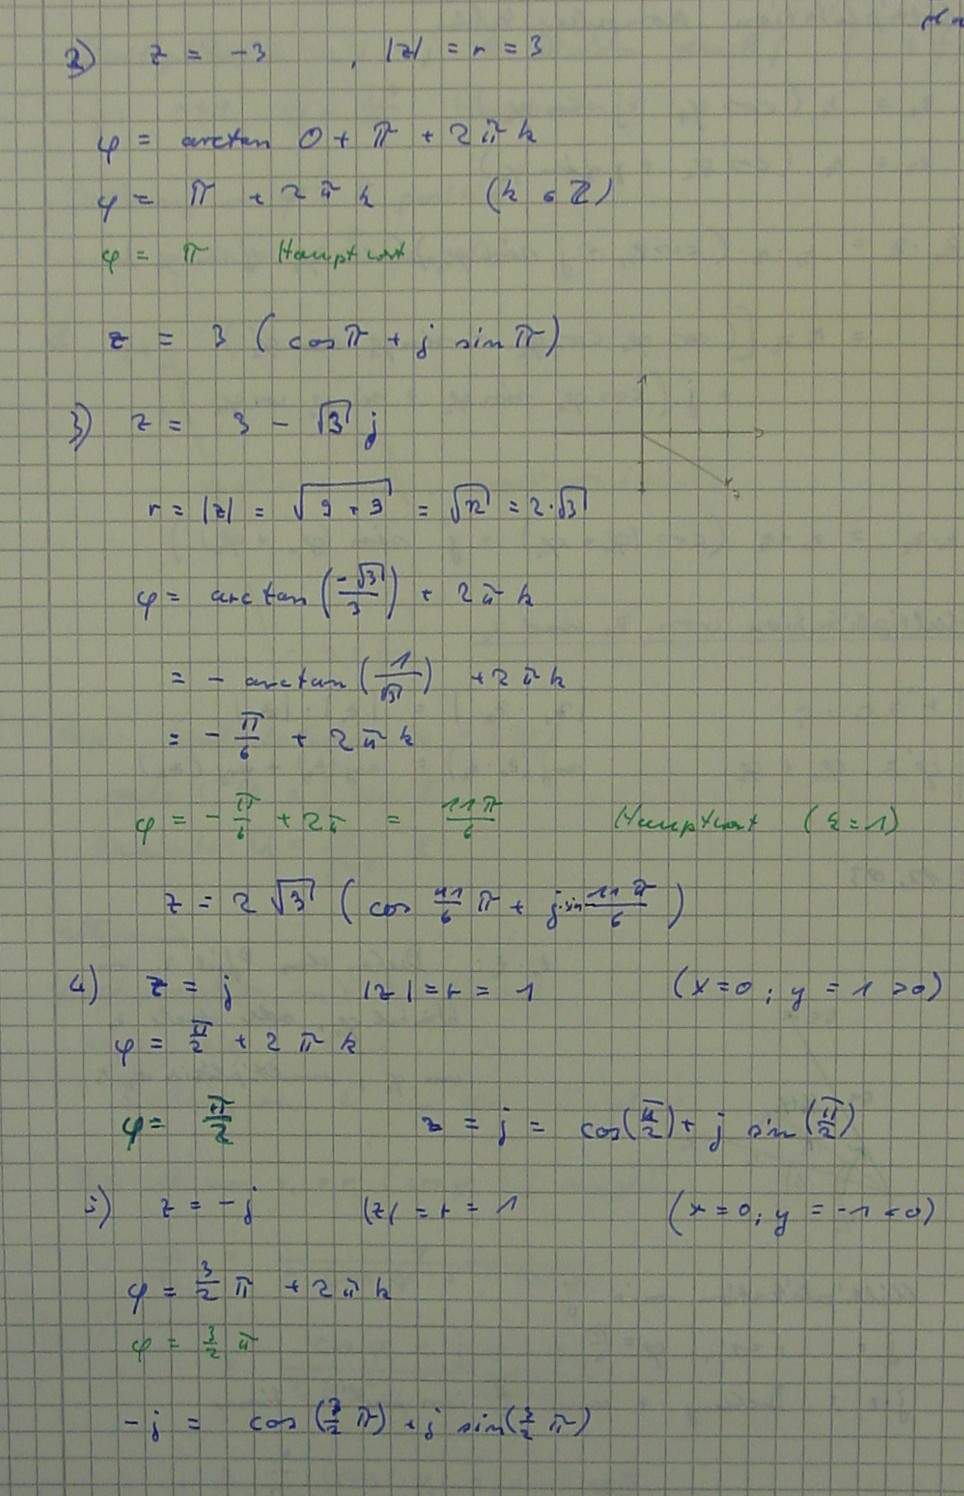 2) z = -3 , |z| = r = 3
φ = arctan 0 + π + 2πk
φ = π + 2πk (k ∈ ℤ)
φ = π Hauptwert
z = 3 (cos π + j sin π)
3) z = 3 - √3 j
r = |z| = √(9 + 3) = √12 = 2·√3
φ = arctan(-√3/3) + 2πk
= - arctan(1/√3) + 2πk
= - π/6 + 2πk
φ = - π/6 + 2π = 11π/6 Hauptwert (k=1)
z = 2√3 (cos 11/6 π + j·sin 11π/6)
4) z = j |z| = r = 1 (x=0; y = 1 > 0)
φ = π/2 + 2πk
φ = π/2 z = j = cos(π/2) + j sin(π/2)
5) z = -j |z| = r = 1 (x=0; y = -1 < 0)
φ = 3/2 π + 2πk
φ = 3/2 π
-j = cos(3/2 π) + j sin(3/2 π)